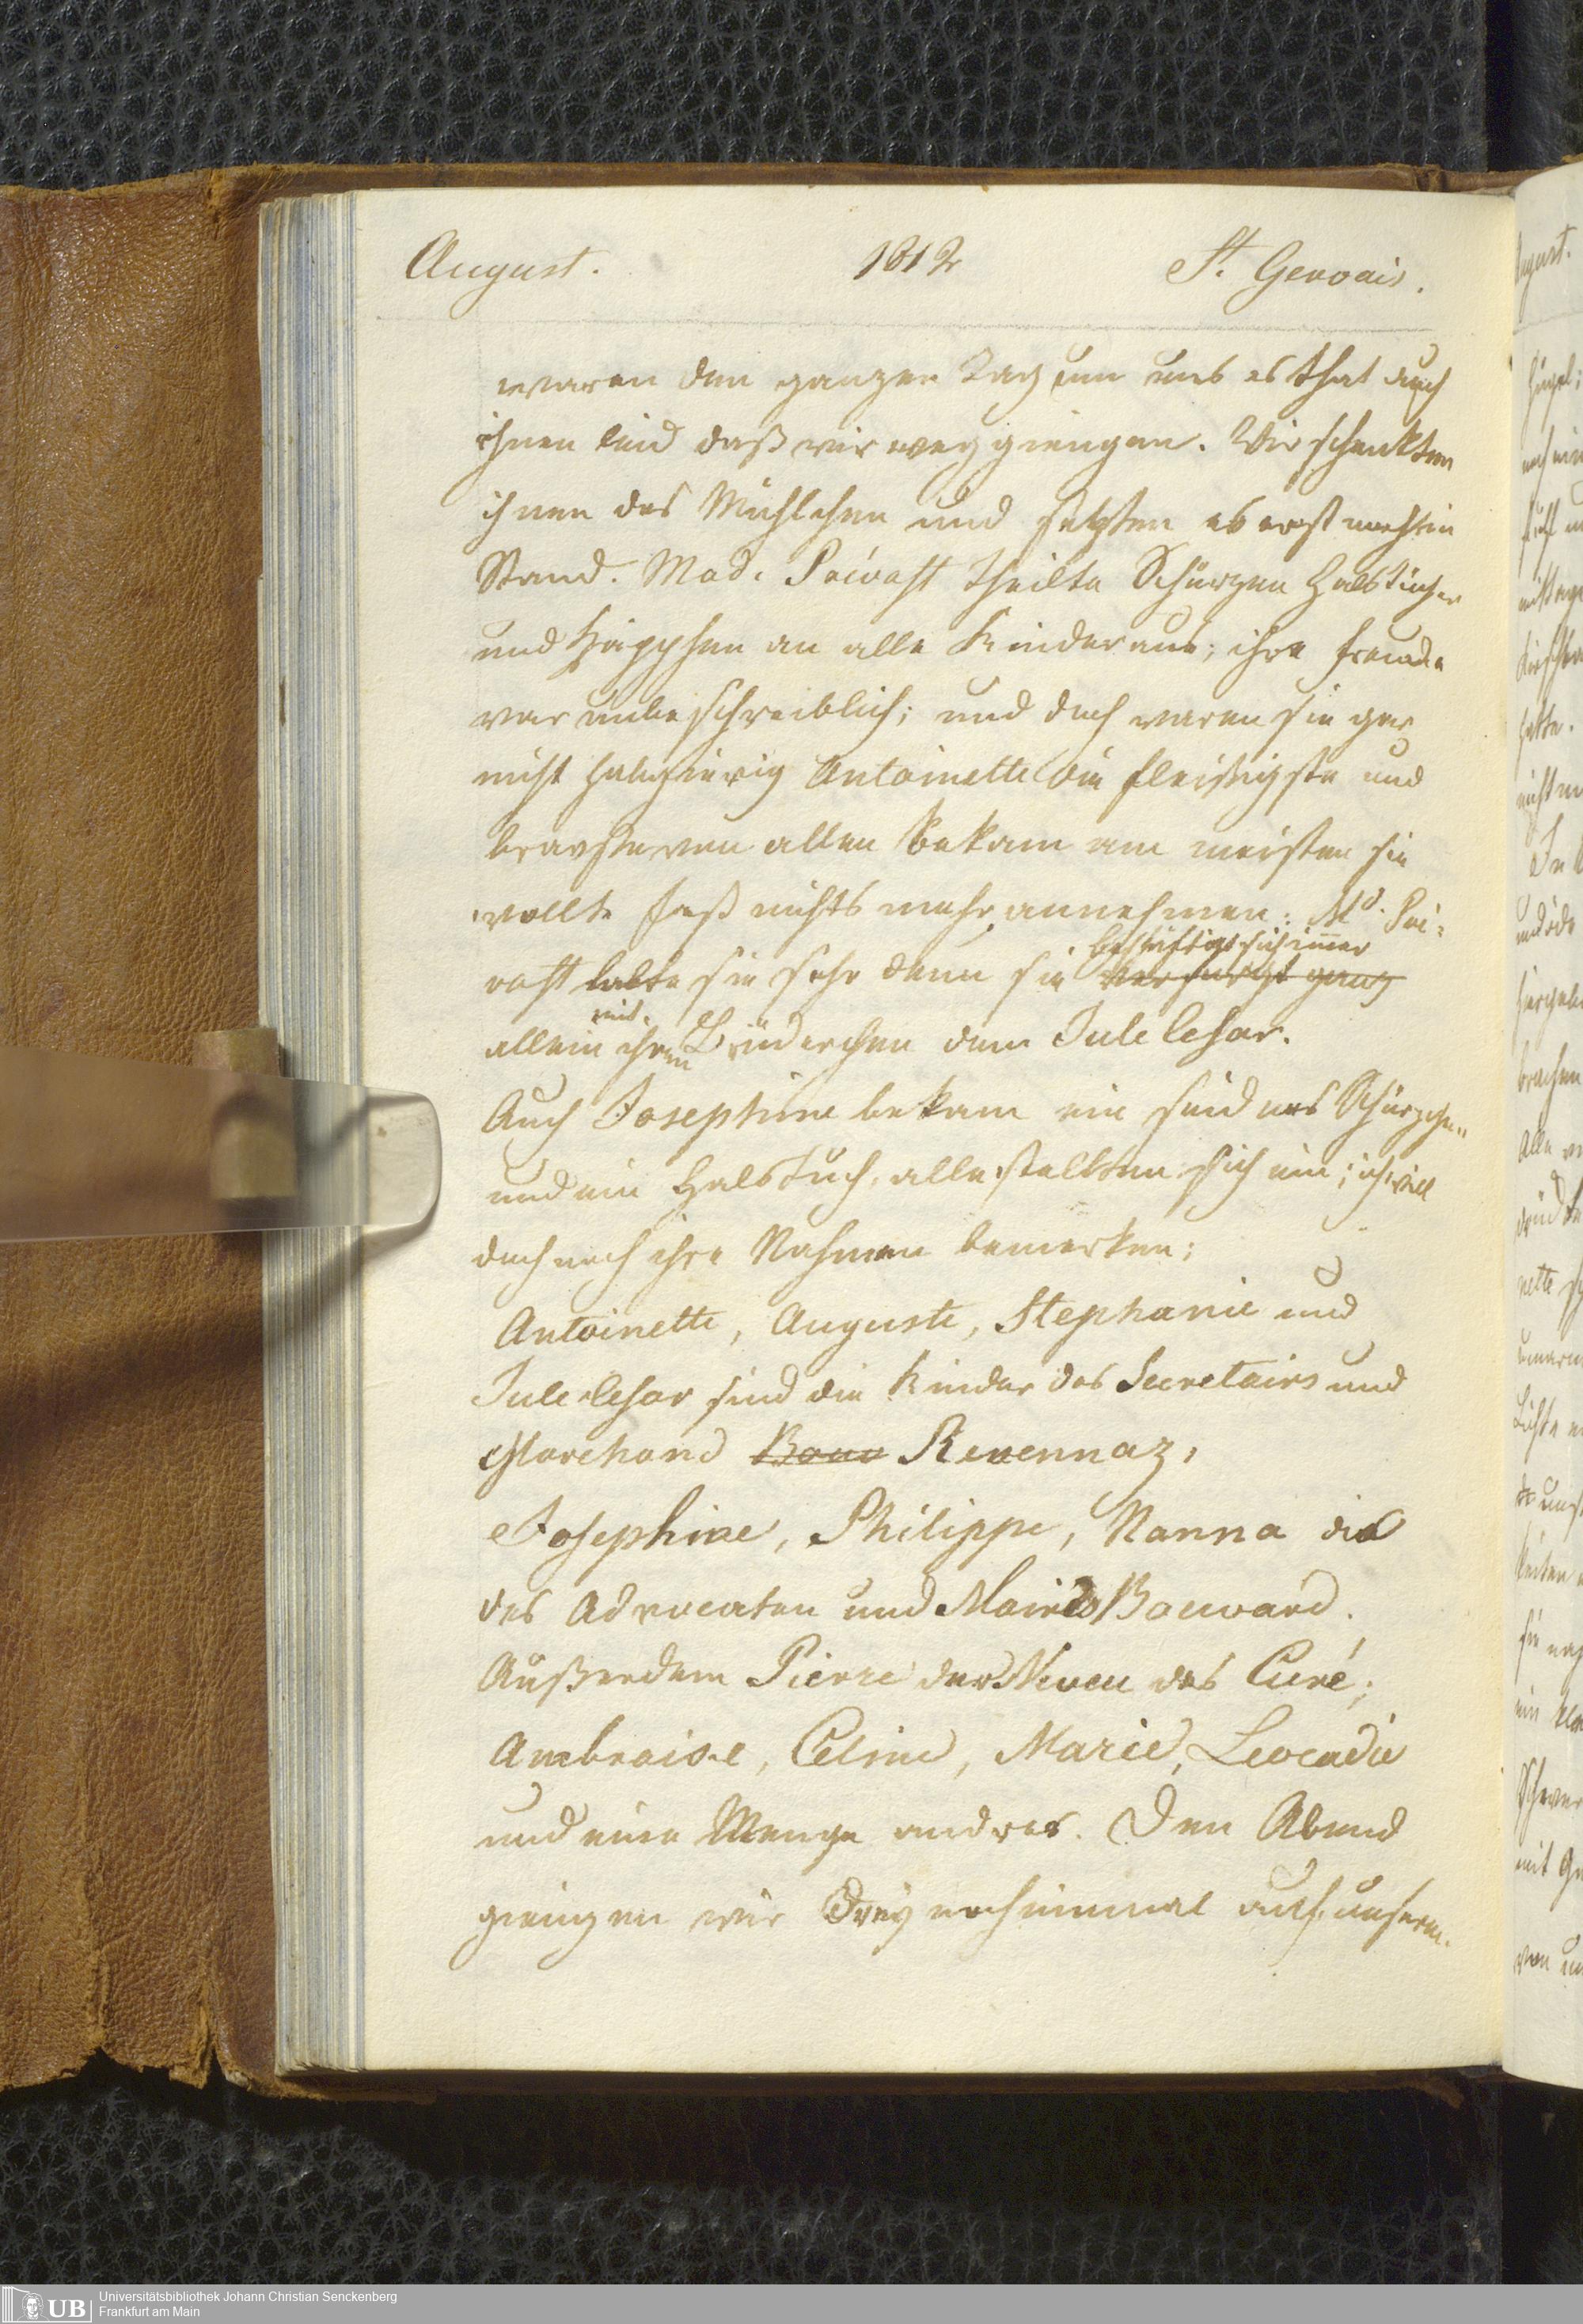 August. 1812 St. Gervais.
waren den ganzen Tag um uns es that auch
ihnen leid daß wir weg giengen. Wir schenkten
ihnen das Mühlchen und setzten es erst recht in
Stand. Mad. theilte Schürzen Halstücher
und Häppchen an alle Kinder aus; ihre Freude
war unbeschreiblich; und doch waren sie gar
nicht habgierig Antoinette die fleißigste und
bravste von allen bekam am meisten sie
wollte fast nichts mehr annehmen. Md.
lobte sie sehr denn sie
beschäftigt sich immer
versorgt ganz
mit
allein ihrem Brüderchen dem Jule lesar.
Auch Josephine bekam ein seidnes Schürzchen
und ein Halstuch, alle stellten sich ein; ich will
doch noch ihre Nahmen bemerken:
Antoinette, Auguste, Stephanie und
Jule lesar sind die Kinder des Secretairs und
Marchand Revennaz,
Josephine, Philippe, Nanna die
des Advocaten und Maires Bouvard.
Außerdem Pierre der Neveu des Curé;
Ambroise, Celine, Marie, Leocadie
und eine Menge andres. Den Abend
giengen wir Drey noch einmal auf unserm
UB Universitätsbibliothek Johann Christian Senckenberg
Frankfurt am Main